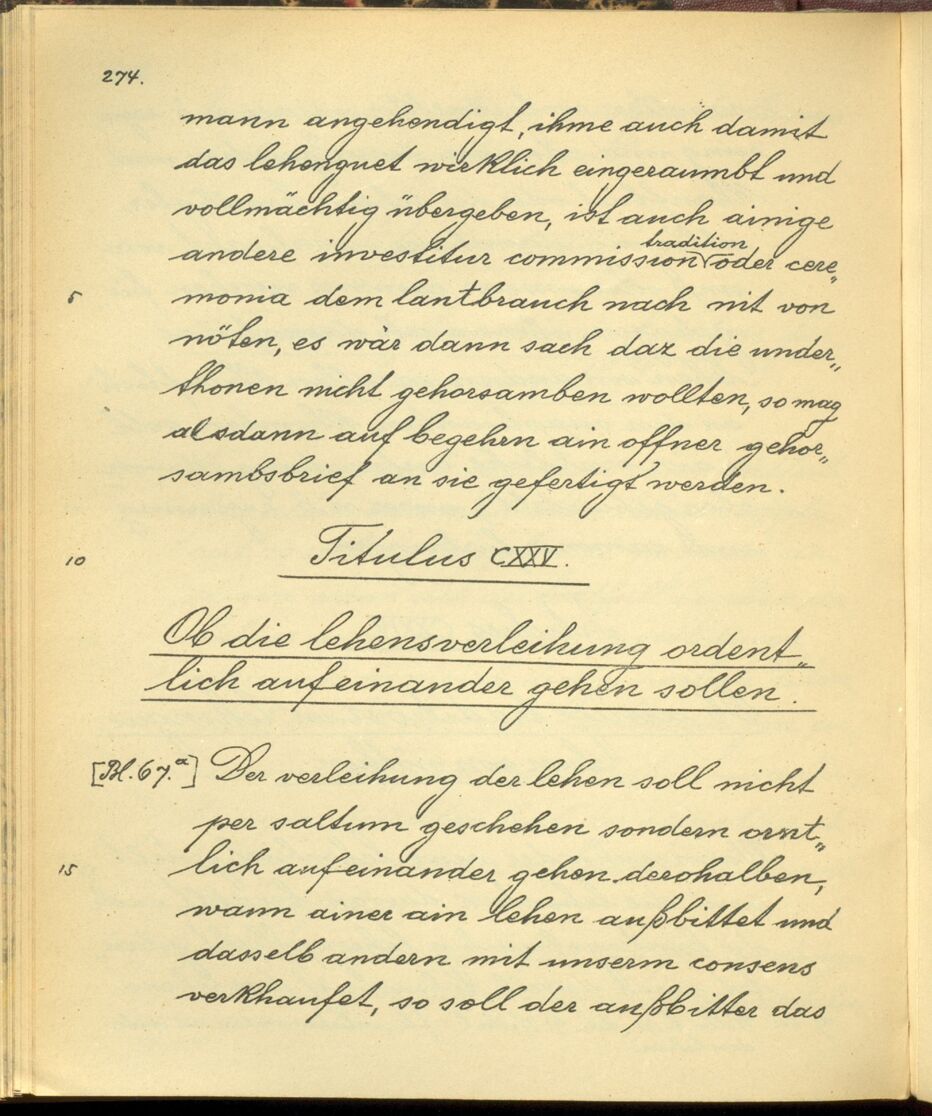 274.
mann angehendigt, ihme auch damit
das lehenguet wirklich eingeraumbt und
vollmächtig übergeben, ist auch ainige
tradition
andere investitur commission oder cere„
5 monia dem lantbrauch nach nit von
nöten, es wär dann sach daz die under„
thonen nicht gehorsamben wollten, so mag
alsdann auf begehrn ain offner gehor„
sambsbrief an sie gefertigt werden.
10 Titulus CXXV.
Ob die lehensverleihung ordent„
lich aufeinander gehen sollen.
[Bl. 67.a] Der verleihung der lehen soll nicht
per saltum geschehen sondern ornt„
15 lich aufeinander gehen. derohalben,
wann ainer ain lehen außbittet und
dasselb andern mit unserm consens
verkhaufet, so soll der außbitter das